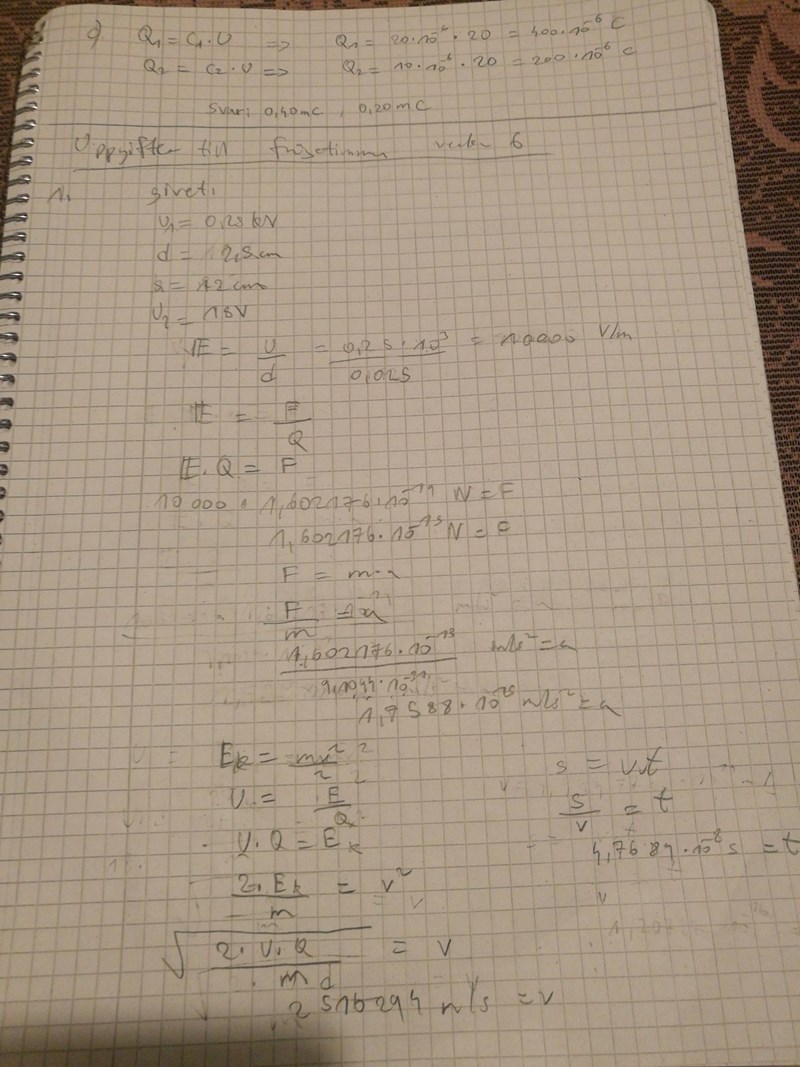 c) Q₁ = C₁ · U => Q₁ = 20·10⁻⁶ · 20 = 400·10⁻⁶ C
Q₂ = C₂ · U => Q₂ = 10·10⁻⁶ · 20 = 200·10⁻⁶ C
Svar: 0,40 mC , 0,20 mC
Uppgifter till 6
1. givet:
U₁ = 0,25 kV
d = 2,5 cm
s = 12 cm
U₂ = 18V
E = U/d = 0,25·10³/0,025 = 10000 V/m
E = F/Q
E·Q = F
10 000 · 1,602176·10⁻¹⁹ N = F
1,602176·10⁻¹⁵ N = F
F = m·a
F/m = a
1,602176·10⁻¹⁵/ m/s² = a
m/s² = a
Eₖ = mv²/2
U = E/Q
U·Q = Eₖ
2·Eₖ/m = v²
√(2·U·Q/m) = v
2516294 m/s = v
s = v·t
s/v = t
4,7689·10⁻⁸ s = t